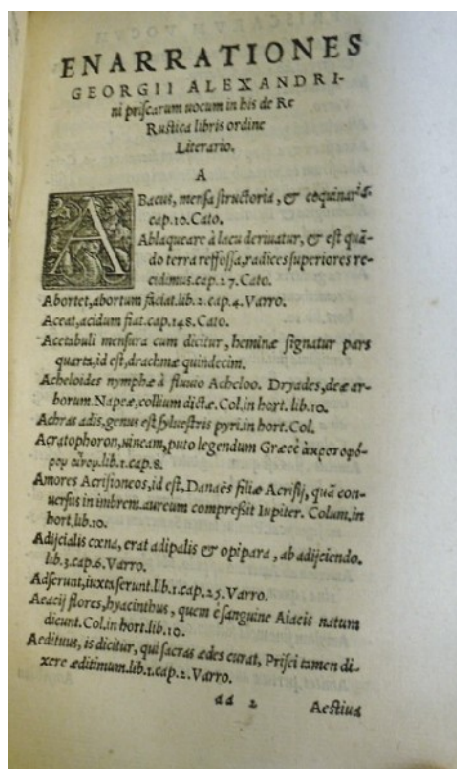 ENARRATIONES
GEORGII ALEXANDRI-
ni priscarum uocum in his de Re
Rustica libris ordine
Literario.
A
ABacus, mensa structoria, & coquinaria.
cap.10. Cato.
Ablaqueare à lacu deriuatur, & est quã-
do terra reffossa, radices superiores re-
cidimus. cap.27. Cato.
Abortet, abortum faciat. lib.2. cap.4. Varro.
Aceat, acidum fiat. cap.148. Cato.
Acetabuli mensura cum dicitur, heminæ signatur pars
quarta, id est, drachmæ quindecim.
Acheloides nymphæ à fluuio Acheloo. Dryades, deæ ar-
borum. Napeæ, collium dictæ. Col. in hort. lib.10.
Achras adis, genus est syluestris pyri. in hort. Col.
Acratophoron, puto legendum Græcè ἀκροτοφό-
ρον lib.1. cap.8.
Amores Acrisioneos, id est, Danaës filiæ Acrisij, quã con-
uersus in imbrem aureum compressit Iupiter. Colum. in
hort. lib.10.
Adijcialis cœna, erat adipalis & opipara, ab adijciendo.
lib.3. cap.6. Varro.
Adserunt, iuxta serunt. lb.1. cap.25. Varro.
Aeacij flores, hyacinthus, quem è sanguine Aiacis natum
dicunt. Col. in hort. lib.10.
Aedituus, is dicitur, qui sacras ædes curat, Prisci tamen di-
xere æditimum. lib.1. cap.2. Varro.
dd 2 Aestiua